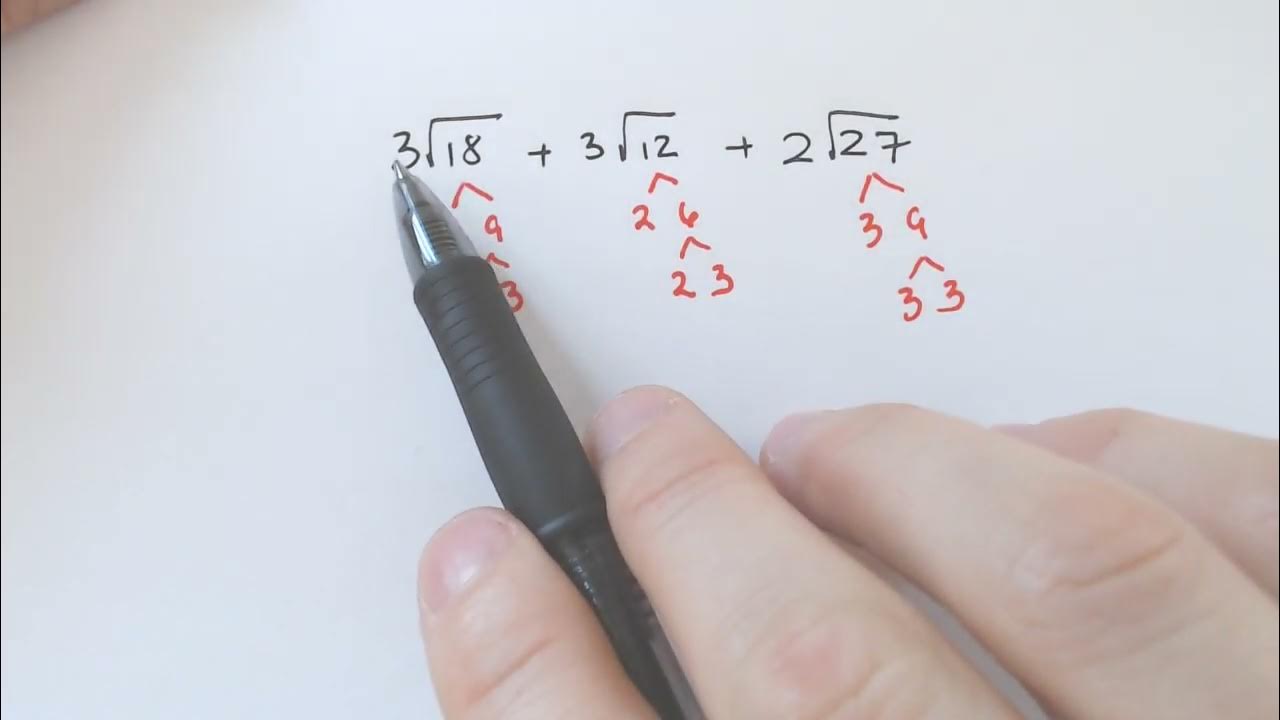 3√18 + 3√12 + 2√27
9 2 6 3 9
3 2 3 3 3